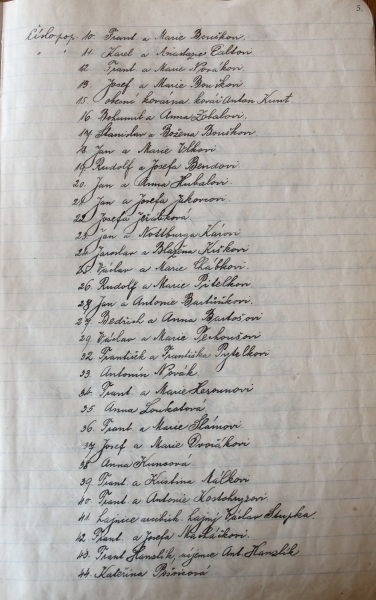 5.
Číslo pop. 10. Frant a Marie Bouškovi.
" " 11. Karel a Anastazie
12. Frant a Marie Novákovi
13. Josef a Marie Bouškovi
15 obecní kovárna kovář Anton Kunt
16. Bohumil a Anna
17. Stanislav a Božena Bouškovi
18. Jan a Marie Vlkovi
19. Rudolf a Josefa Bendovi
20. Jan a Anna Hubalovi
21. Jan a Josefa
22. Josefa Jeřábková
23. Jan a Nottburga
24. Jaroslav a Blažena Kiškovi
25. Václav a Marie Chábkovi.
26. Rudolf a Marie Pitelkovi
28. Jan a Antonie Bartůňkovi.
27. Bedřich a Anna Bartošovi
29. Václav a Marie
32. František a Františka Pytelkovi
33. Antonín Novák
34. Frant a Marie
35. Anna Loukotová
36. Frant a Marie Slámovi
37. Josef a Marie Dvořákovi
38. Anna Kuncová
39. Frant a Kristina Málkovi
40. Frant a Antonie
41. hajný Václav Stupka.
42. Frant a Josefa
43. Frant Hanzlík, Ant Hanzlík
44. Kateřina